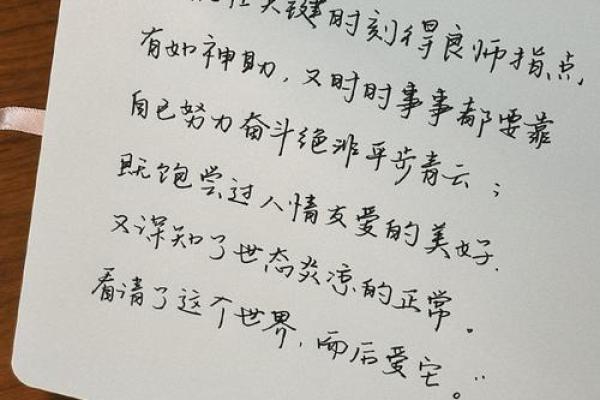 在关键时刻得良师指点,
有如神助,又时时事事都要靠
自己努力奋斗绝非平步青云;
既饱尝过人情友爱的美好.
又深知了世态炎凉的正常。
看清了这个世界,而后爱它。”